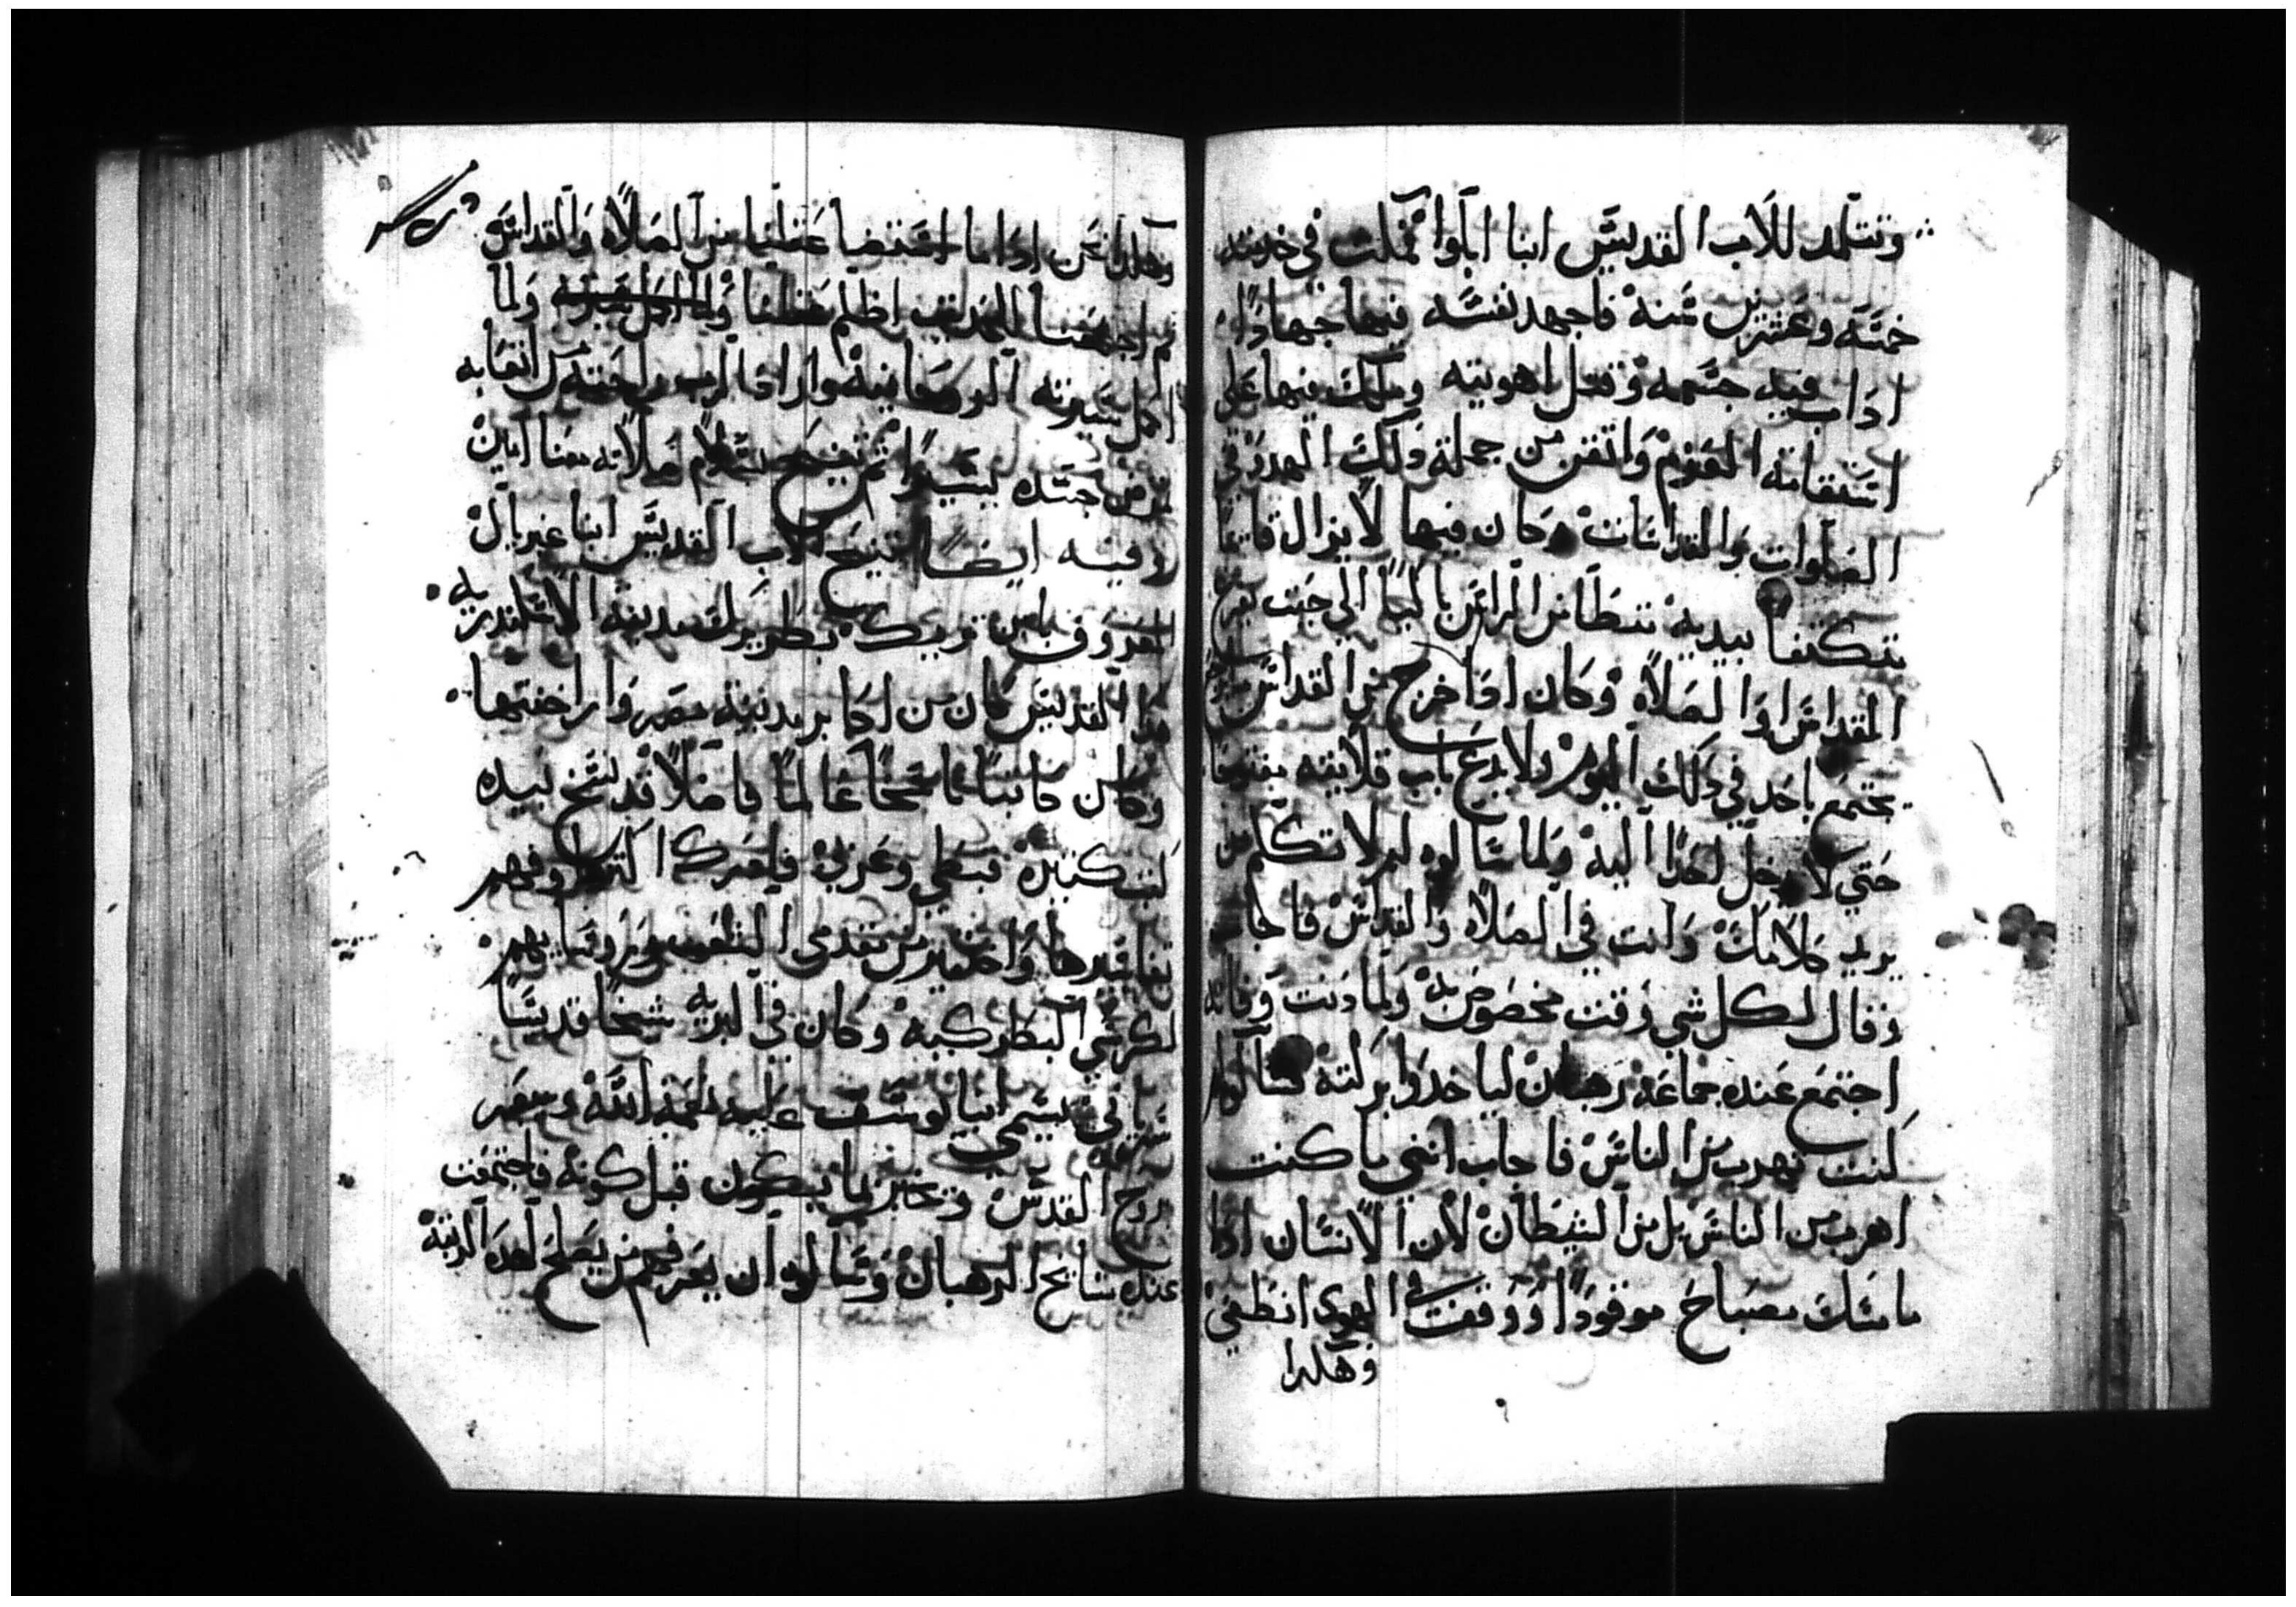 وتتلمد للاب القديس انبا ابلوا كملت في خدمته
خمسه وعشرين سنه فاجهد نفسه فيها جهادًا
اداب فيه جسمه وقتل اهويته وملك فيها علي
استقامة القوم واتقن من جملة دلك الهدو في
الصلوات والقداسات وكان فيها لا يزال قايمًا
متكتفًا بيديه متطامن الراس باكيًا الي حيت يفرغ
القداس او الصلاه وكان ادا خرج من القداس
يجتمع باحد في دلك اليوم ولا يدع باب قلايته مفتوحًا
حتي لا يدخل احدًا اليه ولما سالوه لم لا تكلم من
يريد كلامك وانت في الصلاه والقداس فاجاب
وقال لكل شي وقت مخصوص به ولما دنت وفاته
اجتمع عنده جماعه رهبان لياخدوا بركته سالوه لم
كنت تهرب من الناس فاجاب انني ما كنت
اهرب من الناس بل من الشيطان لان الانسان ادا
مامسك مصباح موقودًا ووقف في الهوي انطفي
وهكدا
وهكدا نحن ادا ما اضا عقلنا من الصلاه والقداس
ثم اجتمعنا اظلم عقلنا ولما اكمل سيرته ولما
اكمل سيرته الروحانيه واراد الرب راحته من اتعابه
مرض جسده يسيرًا ثم تنيح بسلام صلاته معنا امين
وفيه ايضًا تنيح الاب القديس انبا غبريال
المعروف بابن تريك بطريرك مدينة الاسكندريه
هدا القديس كان من اكابر مدينة مصر واراخنتها
وكان كاتبًا ناسخًا عالمًا فاضلًا قد نسخ بيده
كتب كتيره قبطي وعربي فادرك اكترها وفهم
تفاسيرها واختير من مقدمي الشعب وروسايهم
لكرسي البطركيه وكان في البريه شيخًا قديسًا
سرياني يسمي انبا يوسف عليه نعمة الله
بروح القدس وتخبر بما يكون قبل كونه فاجتمعت
عنده مشايخ الرهبان وسالوه ان يعرفهم من يصلح لهده الرتبه